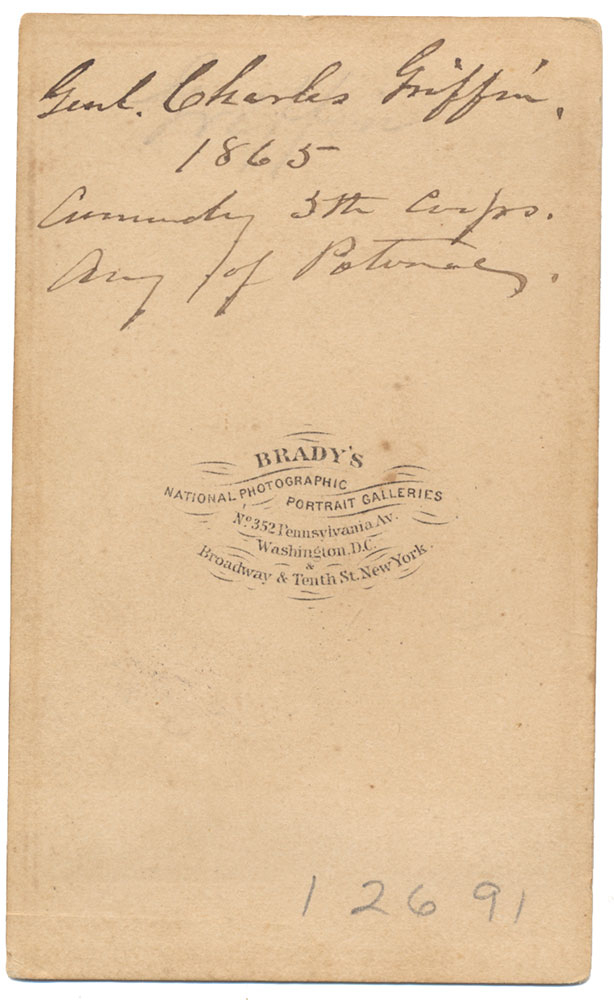 Genl. Charles Griffin.
1865
Comundg 5th Corps.
Army of Potomac.
BRADY'S
NATIONAL PHOTOGRAPHIC
PORTRAIT GALLERIES
No. 352 Pennsylvania Av.
Washington, D.C.
&
Broadway & Tenth St. New York.
1 26 91